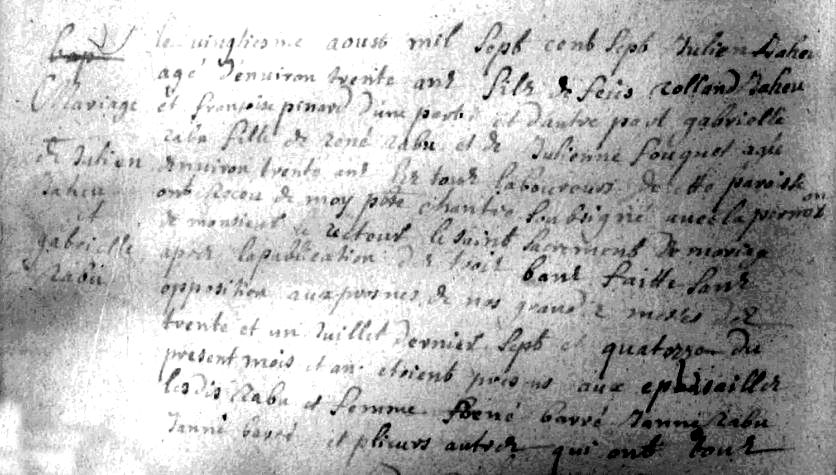 bap
Mariage
de Julien
Jaheu
et
gabrielle
Rabu
le vingtiesme aoust mil sept cent sept Julien Jaheu
agé denviron trente ans fils de feus rolland Jaheu
et françoise pinard dune part et dautre part gabrielle
rabu fille de rené rabu et de Julienne fouquet agée
denviron trente ans les tous laboureurs de cette paroisse
ont receu de moy pbre chantre soubsigné avec la permon
de monsieur le recteur le saint sacrement de mariage
apres la publication des trois bans faitte sans
opposition aux prosnes de nos grandes messes des
trente et un Juillet dernier sept et quatorze du
present mois et an etoient presens aux epousailles
lesdis Rabu et femme René barré Janne Rabu
Janne barré et plieurs autres qui ont tous